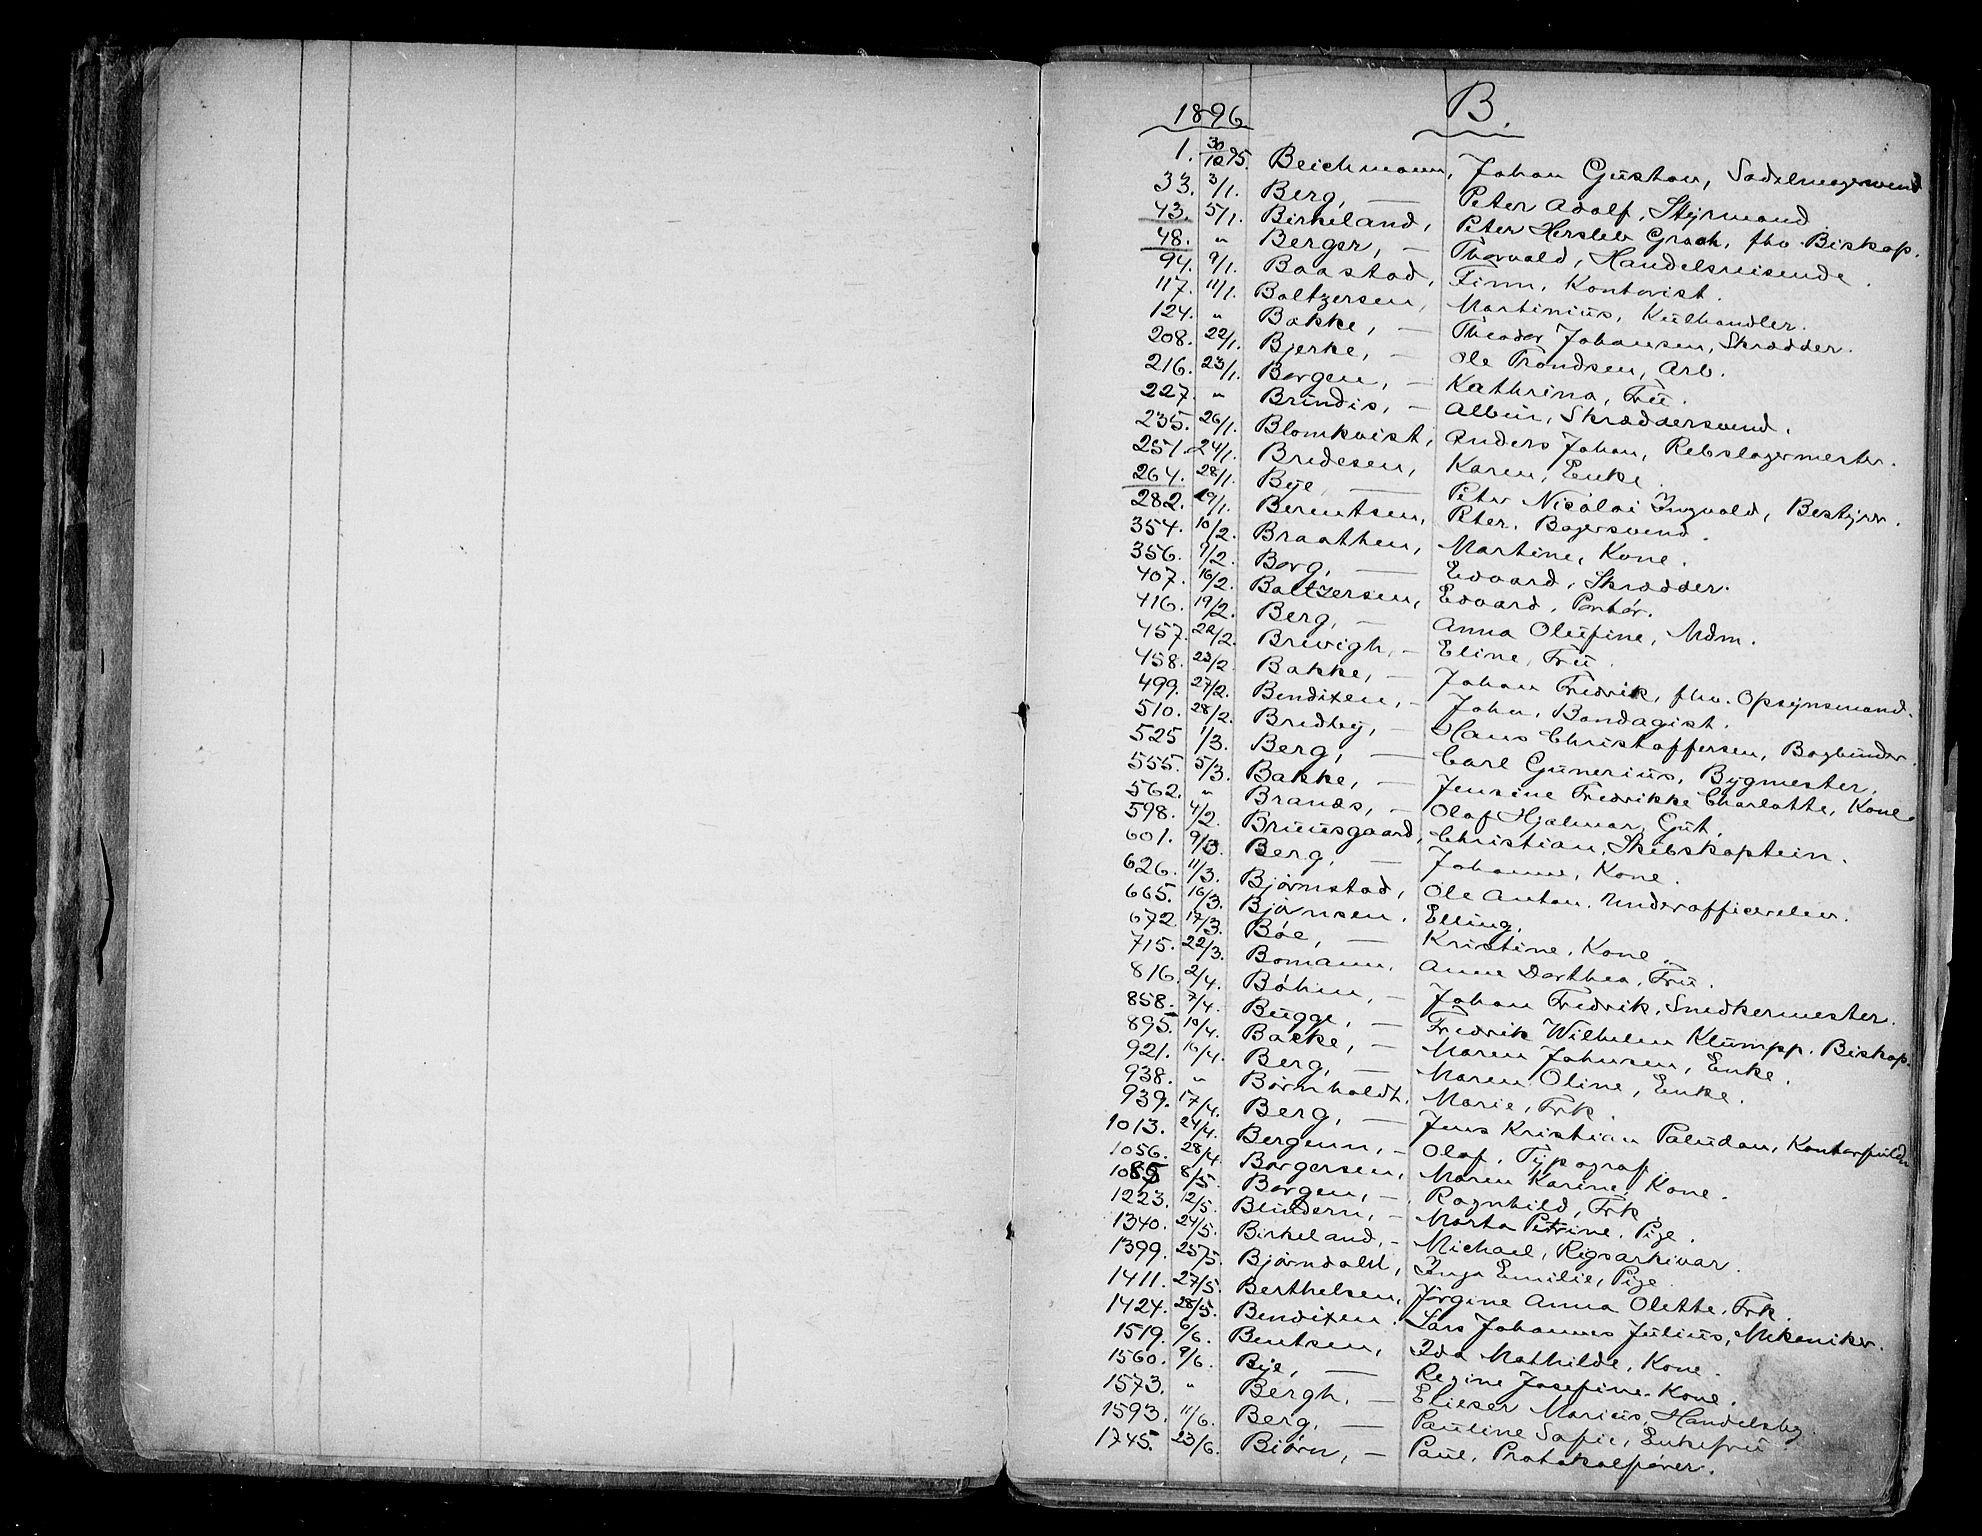 B.
1896
1. 30/12 95. Beichmann, Johan Gustav, Sadelmagersvend
33. 3/1. Berg, — Peter Adolf, Styrmand
43. 5/1. Birkeland, Peter Hersleb Graah, fhv. Biskop.
48. " Berger, — Thorvald, Handelsreisende.
94. 9/1. Baastad, Finn, Kontorist.
117. 11/1. Baltzersen, Martinius, Kulhandler.
124. " Bakke, — Theodor Johansen, Skrædder.
208. 22/1. Bjerke, — Ole Trondsen, Arb.
216. 23/1. Borgen, — Kathrina, Fru.
227. " Brundis, — Albin, Skræddersvend.
235. 26/1. Blomkvist, Anders Johan, Rebslagermester.
251. 24/1. Bredesen, Karen, Enke.
264. 28/1. Bye, — Peter Nicolai Ingvald, Bestyrer.
282. 19/1. Berentsen, Peter, Bagersvend.
354. 10/2. Braathen, Martine, Kone.
356. 9/2. Borg, — Edvard, Skrædder.
407. 16/2. Baltzersen, Edvard, Portør.
416. 19/2. Berg, — Anna Olufine, Mdm.
457. 22/2. Brevigh, — Eline, Fru.
458. 23/2. Bakke, — Johan Fredrik, fhv. Opsynsmand.
499. 27/2. Bendixen, — John, Bandagist.
510. 28/2. Bredby, — Hans Christoffersen, Bogbinder.
525 1/3. Berg, — Carl Gunerius, Bygmester.
555. 5/3. Bakke, — Jensine Fredrikke Charlotte, Kone.
562. " Brands, — Olaf Hjalmar, Gut.
598. 4/2. Bruusgaard, Christian, Skibskaptein.
601. 9/3. Berg, — Johanne, Kone.
626. 11/3. Bjørnstad, Ole Anton, Underofficerelev.
665. 16/3. Bjørnsen, Elling.
672 17/3. Bøe, — Kristine, Kone.
715. 22/3. Bomann, Anne Dorthea, Fru.
816. 2/4. Bøhm, — Johan Fredrik, Snedkermester.
858. 7/4. Bugge, — Fredrik Wilhelm Klumpp. Biskop.
895. 10/4. Backe, — Maren Johnsen, Enke.
921. 16/4. Berg, — Maren Oline, Enke.
938. " Bornholdt, Marie, Frk.
939. 17/4. Berg, — Jens Kristian Paludan, Kontorfuldm
1013. 24/4. Bergenn, — Olaf, Typograf.
1056. 28/4 Borgersen, Maren Karine, Kone.
1085 8/5. Borgen, — Ragnhild, Frk.
1223. 12/5. Blindern, — Marta Petrine, Pige.
1340. 24/5. Birkeland, — Michael, Rigsarkivar.
1399. 25/5. Bjørndahl, Inga Emilie, Pige.
1411. 27/5. Berthelsen, Jørgine Anna Olette, Frk.
1424. 28/5. Bendixen. Lars Johannes Julius, Mekaniker.
1519. 6/6. Bentsen, Ida Mathilde, Kone.
1560. 9/6. Bye, — Regine Josefine, Kone.
1573. " Bergh, — Elieser Marius, Handelsbg.
1593. 11/6. Berg, — Pauline Sofie, Enkefru
1745. 23/6. Biørn, — Paul, Protokolfører.